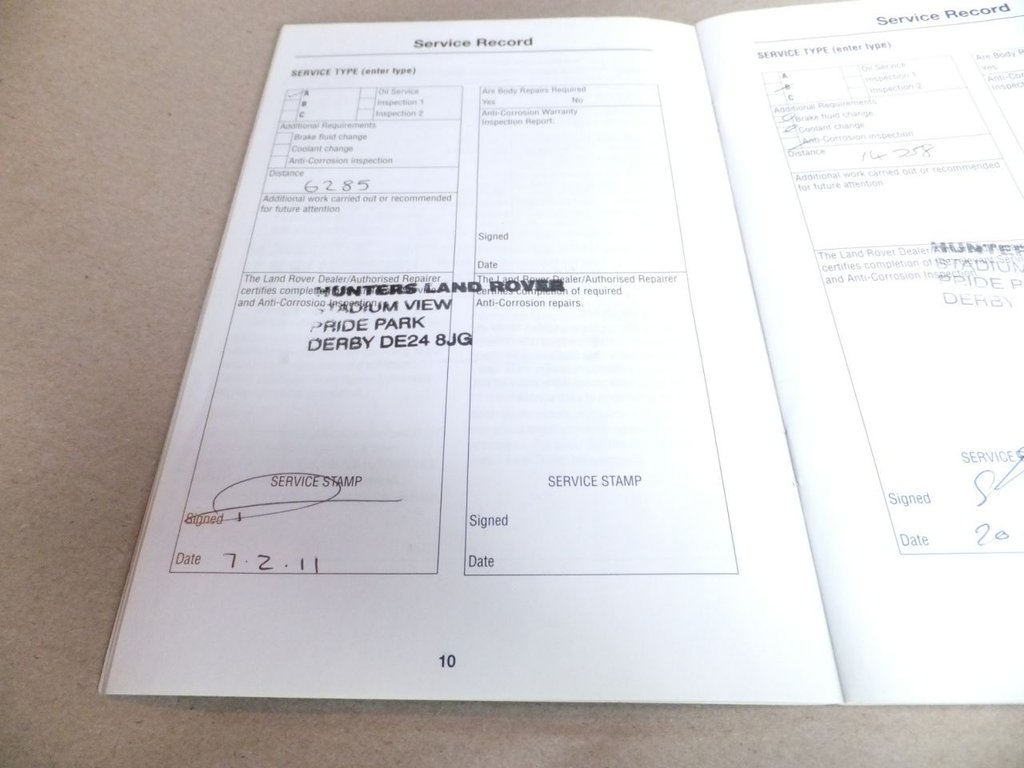 Service Record
SERVICE TYPE (enter type)
A
B
C
Oil Service
Inspection 1
Inspection 2
Additional Requirements
Brake fluid change
Coolant change
Anti-Corrosion inspection
Distance
6285
Additional work carried out or recommended
for future attention
The Land Rover Dealer/Authorised Repairer
and Anti-Corrosion Inspection
HUNTERS LAND ROVER
STADIUM VIEW
PRIDE PARK
DERBY DE24 8JG
SERVICE STAMP
Signed
Date 7.2.11
Are Body Repairs Required
Yes No
Anti-Corrosion Warranty
Inspection Report:
Signed
Date
The Land Rover Dealer/Authorised Repairer
certifies completion of required
Anti-Corrosion repairs.
SERVICE STAMP
Signed
Date
10
Service Record
SERVICE TYPE (enter type)
A
B
C
Oil Service
Inspection 1
Inspection 2
Additional Requirements
Brake fluid change
Coolant change
Anti-Corrosion inspection
Distance
14258
Additional work carried out or recommended
for future attention
The Land Rover
certifies completion of
and Anti-Corrosion
HUNTER
STADIUM
PRIDE P
DERBY
SERVICE
Signed
Date 20
Are Body R
Yes
Anti-Cor
Inspect